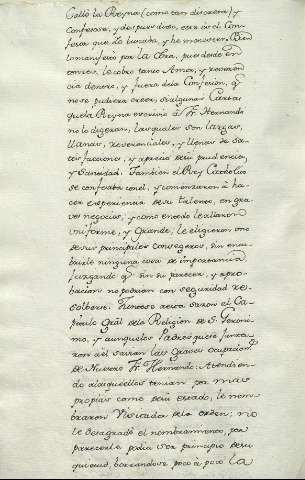 Calló la Reyna (como tan discreta) y
Confesose, y despues dixo, este es el Con-
fesor que Yo buscaba, y he menester. Bien
lo manifestó por la Obra, pues desde en-
tonces, le cobro tanto Amor, y reveren-
cia dentro, y fuera dela Confesion, qe
no se pudiera creer, si algunas Cartas
que la Reyna escrivio à Fr. Hernando
no lo digeran, las quales son largas,
llanas, reverenciales, y llenas de sa-
tisfacciones, y aprecio de su prudencia,
y Santidad. Tambien el Rey Catholico
se confesaba con el, y comenzaron à ha-
cer experiencia de su talento, en gra-
ves negocios, y como en todo le allaron
uniforme, y Grande, le eligieron uno
de sus principales Consegeros, sin encu-
brirle ninguna cosa de importancia
juzgando qe sin su parecer, y apro-
bacion no podian con seguridad re-
solverse. Hizose a esta sazon el Ca-
pitulo Gral dela Religion de S. Geroni-
mo, y aunque los Padres que se junta-
ron en el sabian las graves ocupacions
de Nuestro Fr. Hernando: Atendien-
do à la que ellos tenian por mas
propias como peru estado, le nom-
braron Visitador dela orden; no
le desagradó el nombramiento, por
parecerle podia ser principio de su
quietud, borrandose poco à poco la